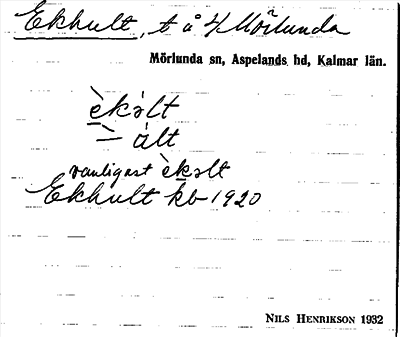 Ekhult, t å 4 Mörlunda
Mörlunda sn, Aspelands hd, Kalmar län.
èkəlt
– àlt
vanligast èkəlt
Ekhult kb 1920
NILS HENRIKSON 1932